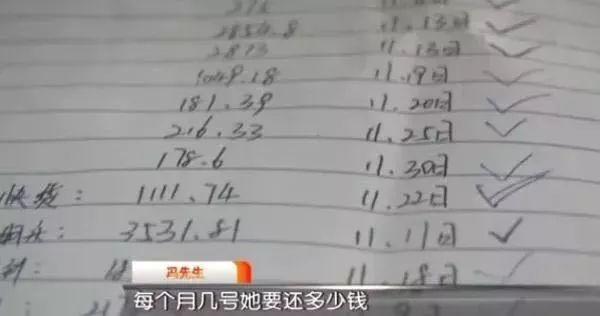 11.13日 ✓
2873 11.13日 ✓
1049.18 11.19日 ✓
181.39 11.20日 ✓
216.33 11.25日 ✓
178.6 11.30日 ✓
1111.74 11.22日 ✓
3531.81 11.11日 ✓
11.18日
冯先生
每个月几号她要还多少钱